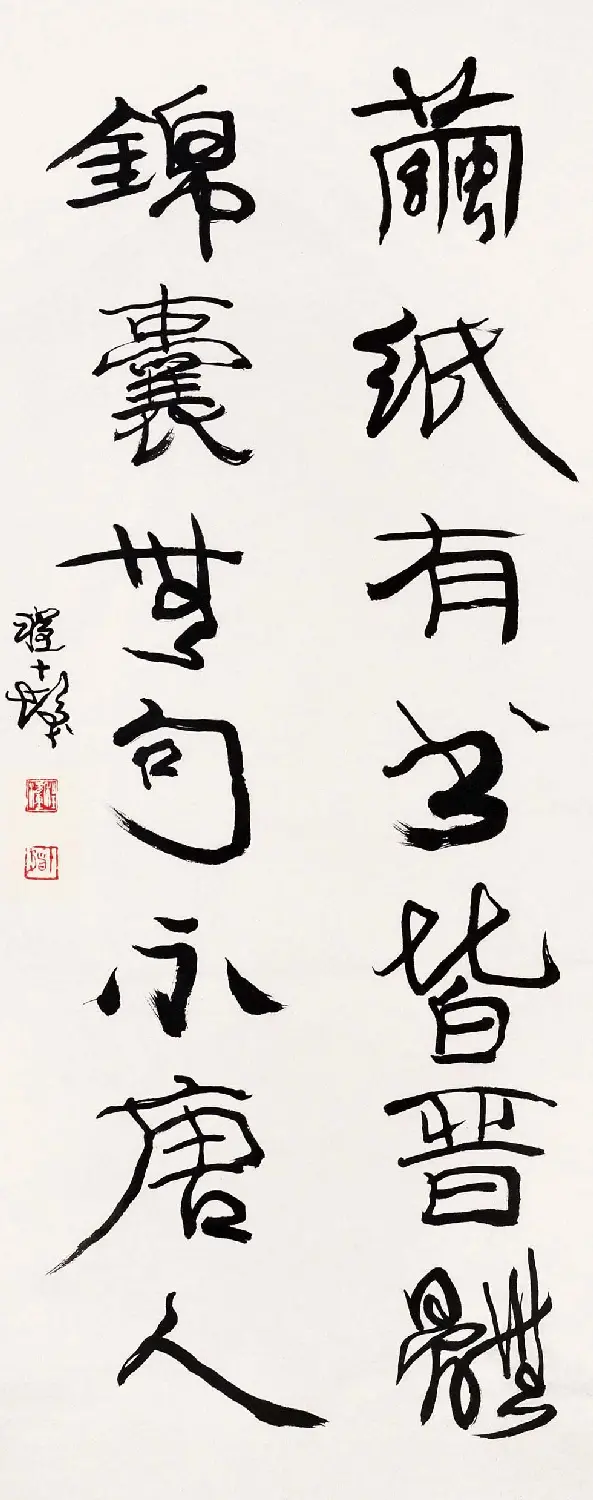 繭紙有书皆晉體
錦囊無句不唐人
瞿十髮